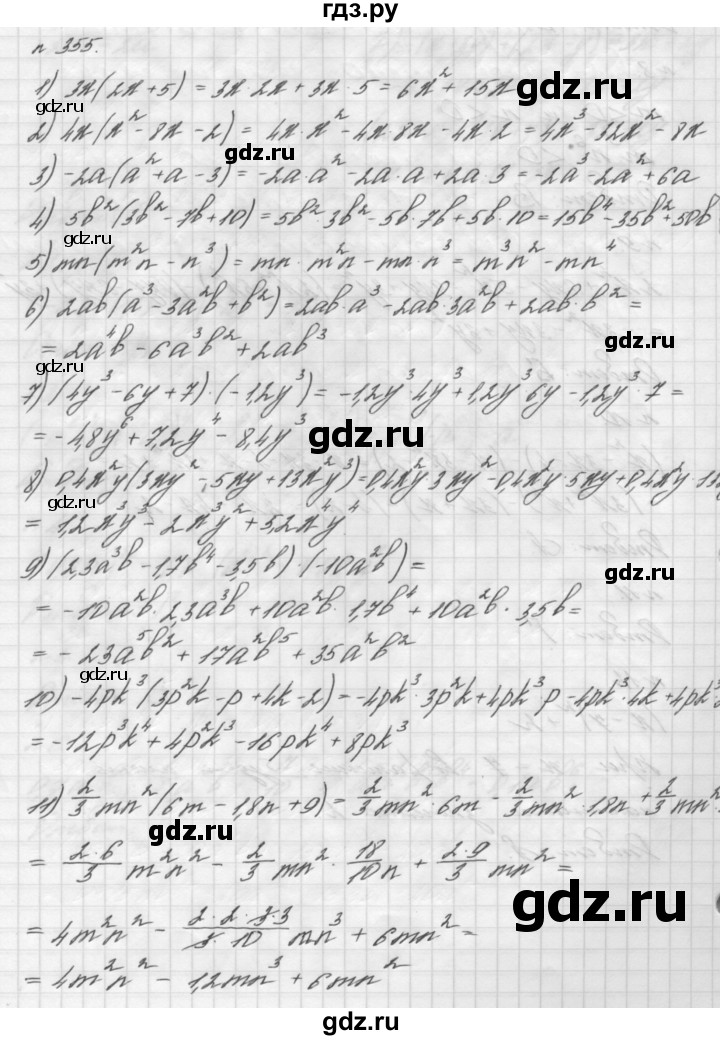 гдз.ру
n 355.
1) 3x(2x+5) = 3x·2x+3x·5=6x²+15x
gdz.ru
gdz.ru
2) 4x(x²-8x-2) = 4x·x²-4x·8x-4x·2=4x³-32x²-8x
gdz.ru
3) -2a(a²+a-3)=-2a·a²-2a·a+2a·3=-2a³-2a²+6a
4) 5b²(3b²-7b+10)=5b²·3b²-5b·7b+5b·10=15b⁴-35b²+50b
gdz.ru
5) mn(m²n-n³)=mn·m²n-mn·n³=m³n²-mn⁴
6) 2ab(a³-3a²b+b²)=2ab·a³-2ab·3a²b+2ab·b²=
gdz.ru
=2a⁴b-6a³b²+2ab³
gdz.ru
7) (4y³-6y+7)·(-1,2y³)=-1,2y³4y³+1,2y³6y-1,2y³·7=
=-4,8y⁶+7,2y⁴-8,4y³
gdz.ru
8) 0,4x²y(3xy²-5xy+13x²y³)=0,4x²y3xy²-0,4x²y5xy+0,4x²y
gdz.ru
=1,2x³y³-2x³y²+5,2x⁴y⁴
9) (2,3a³b-1,7b⁴-3,5b)·(-10a²b)=
gdz.ru
=-10a²b·2,3a³b+10a²b·1,7b⁴+10a²b·3,5b=
=-23a⁵b²+17a²b⁵+35a²b²
gdz.ru
10) -4pk³(3p²k-p+4k-2)=-4pk³·3p²k+4pk³p-4pk³·4k+4pk³
=-12p³k⁴+4p²k³-16pk⁴+8pk³
gdz.ru
11) 2/3mn²(6m-1,8n+9)=2/3mn²·6m-2/3mn²·1,8n+2/3mn²
gdz.ru
=2·6/3m²n²-2/3mn²·18/10n+2·9/3mn²=
gdz.ru
=4m²n²-2·2·3·3/3·10mn³+6mn²=
=4m²n²-1,2mn³+6mn²
gdz.ru
gdz.ru